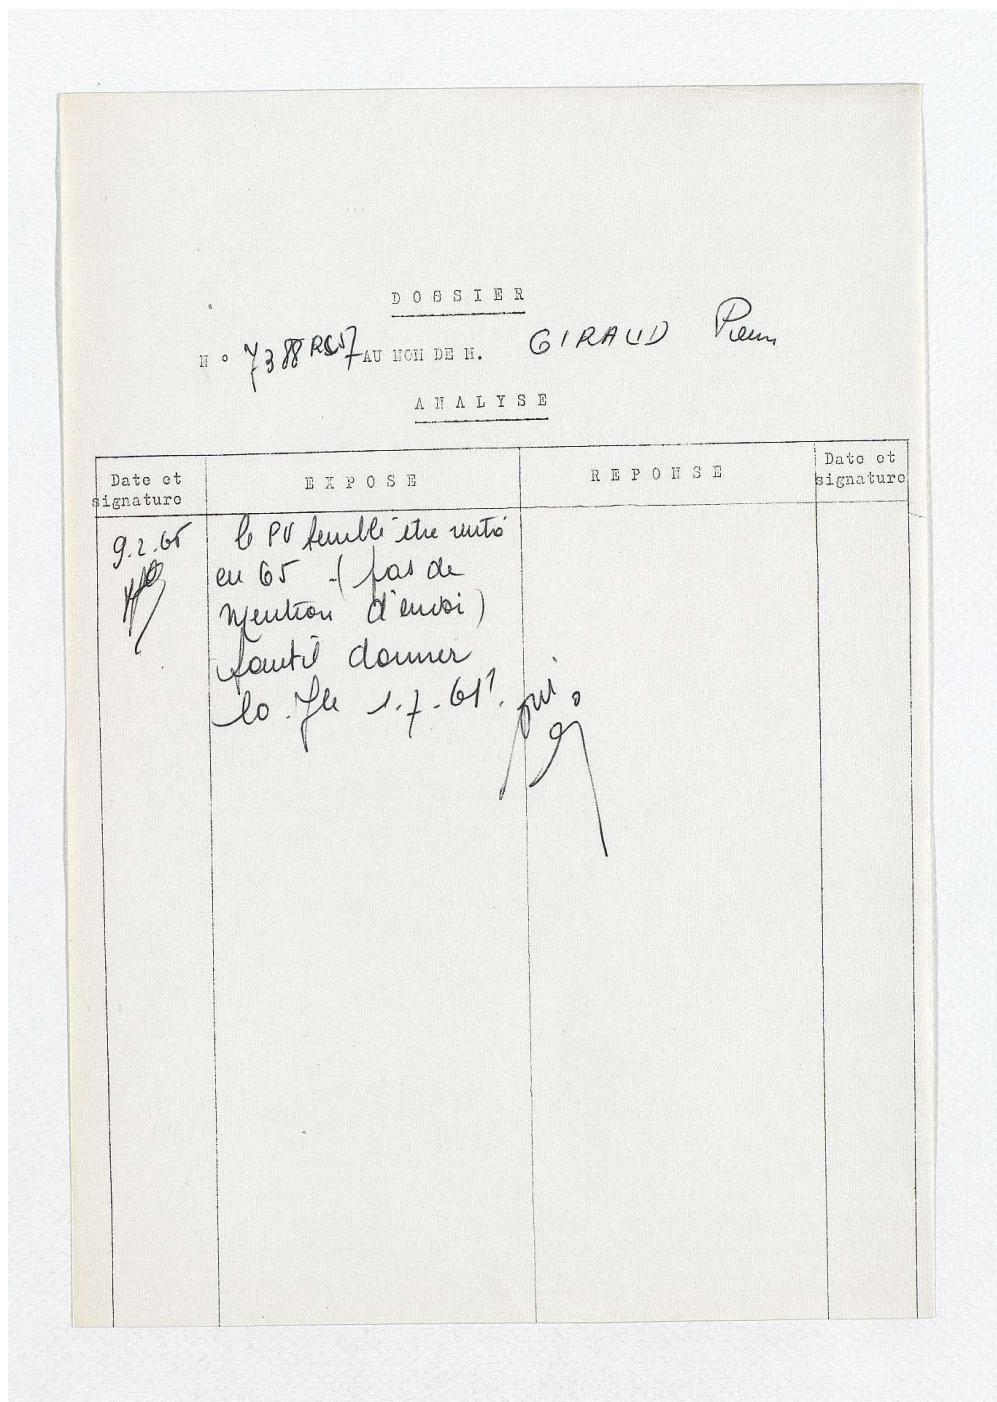 DOSSIER
N° 7388 AU NOM DE M. GIRAUD Pierre
ANALYSE
Date et
signature
EXPOSE
REPONSE
Date et
signature
9.2.65
le PV semble être rentré
en 65 (pas de
mention d'envoi)
faut il donner
la Jce 1.7.61?
oui